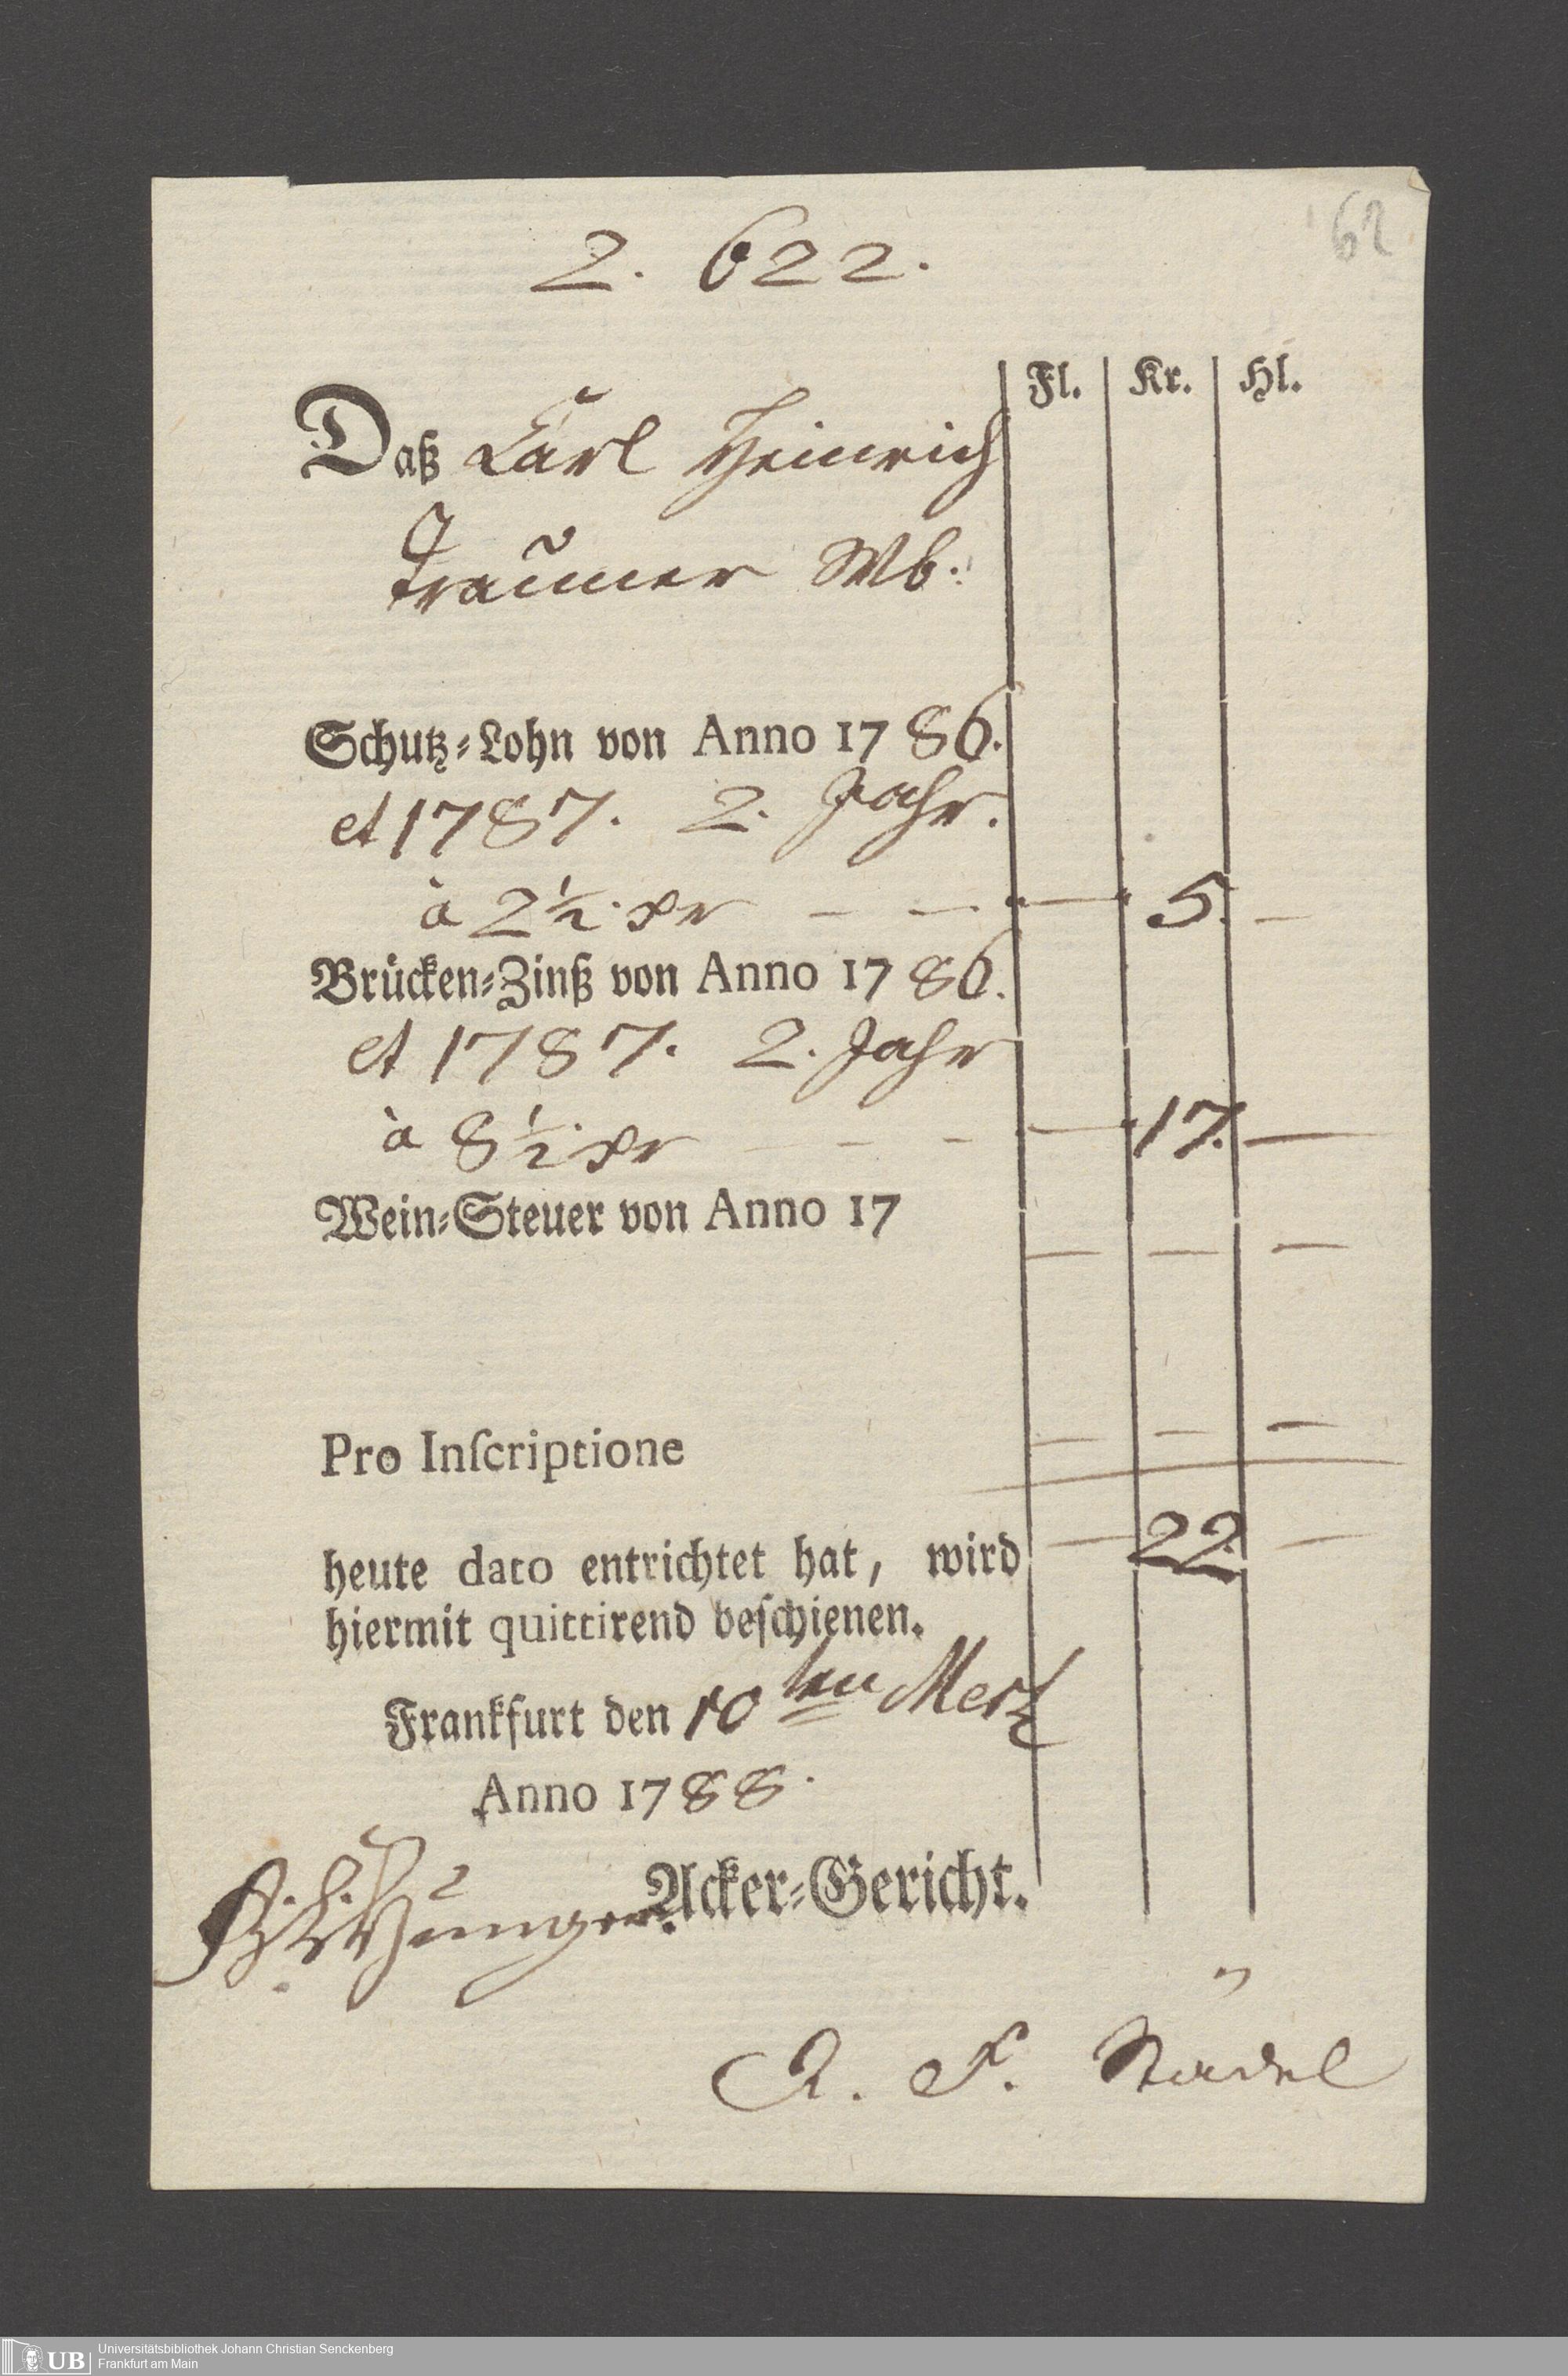 62
2. 622.
Fl. Kr. Hl.
Daß Carl Heinrich
Traumer Wb.
Schutz-Lohn von Anno 1786.
et 1787. 2. Jahr.
à 2½. xr — — — 5. —
Brücken-Zinß von Anno 1786.
et 1787. 2. Jahr
à 8½. xr — — — 17. —
Wein-Steuer von Anno 17
— — —
Pro Inſcriptione — — —
heute dato entrichtet hat, wird — 22. —
hiermit quittirend beſchienen.
Frankfurt den 10ten Mertz
Anno 1788.
Acker-Gericht.
Hunger.
A. F. Städel
UB Universitätsbibliothek Johann Christian Senckenberg
Frankfurt am Main